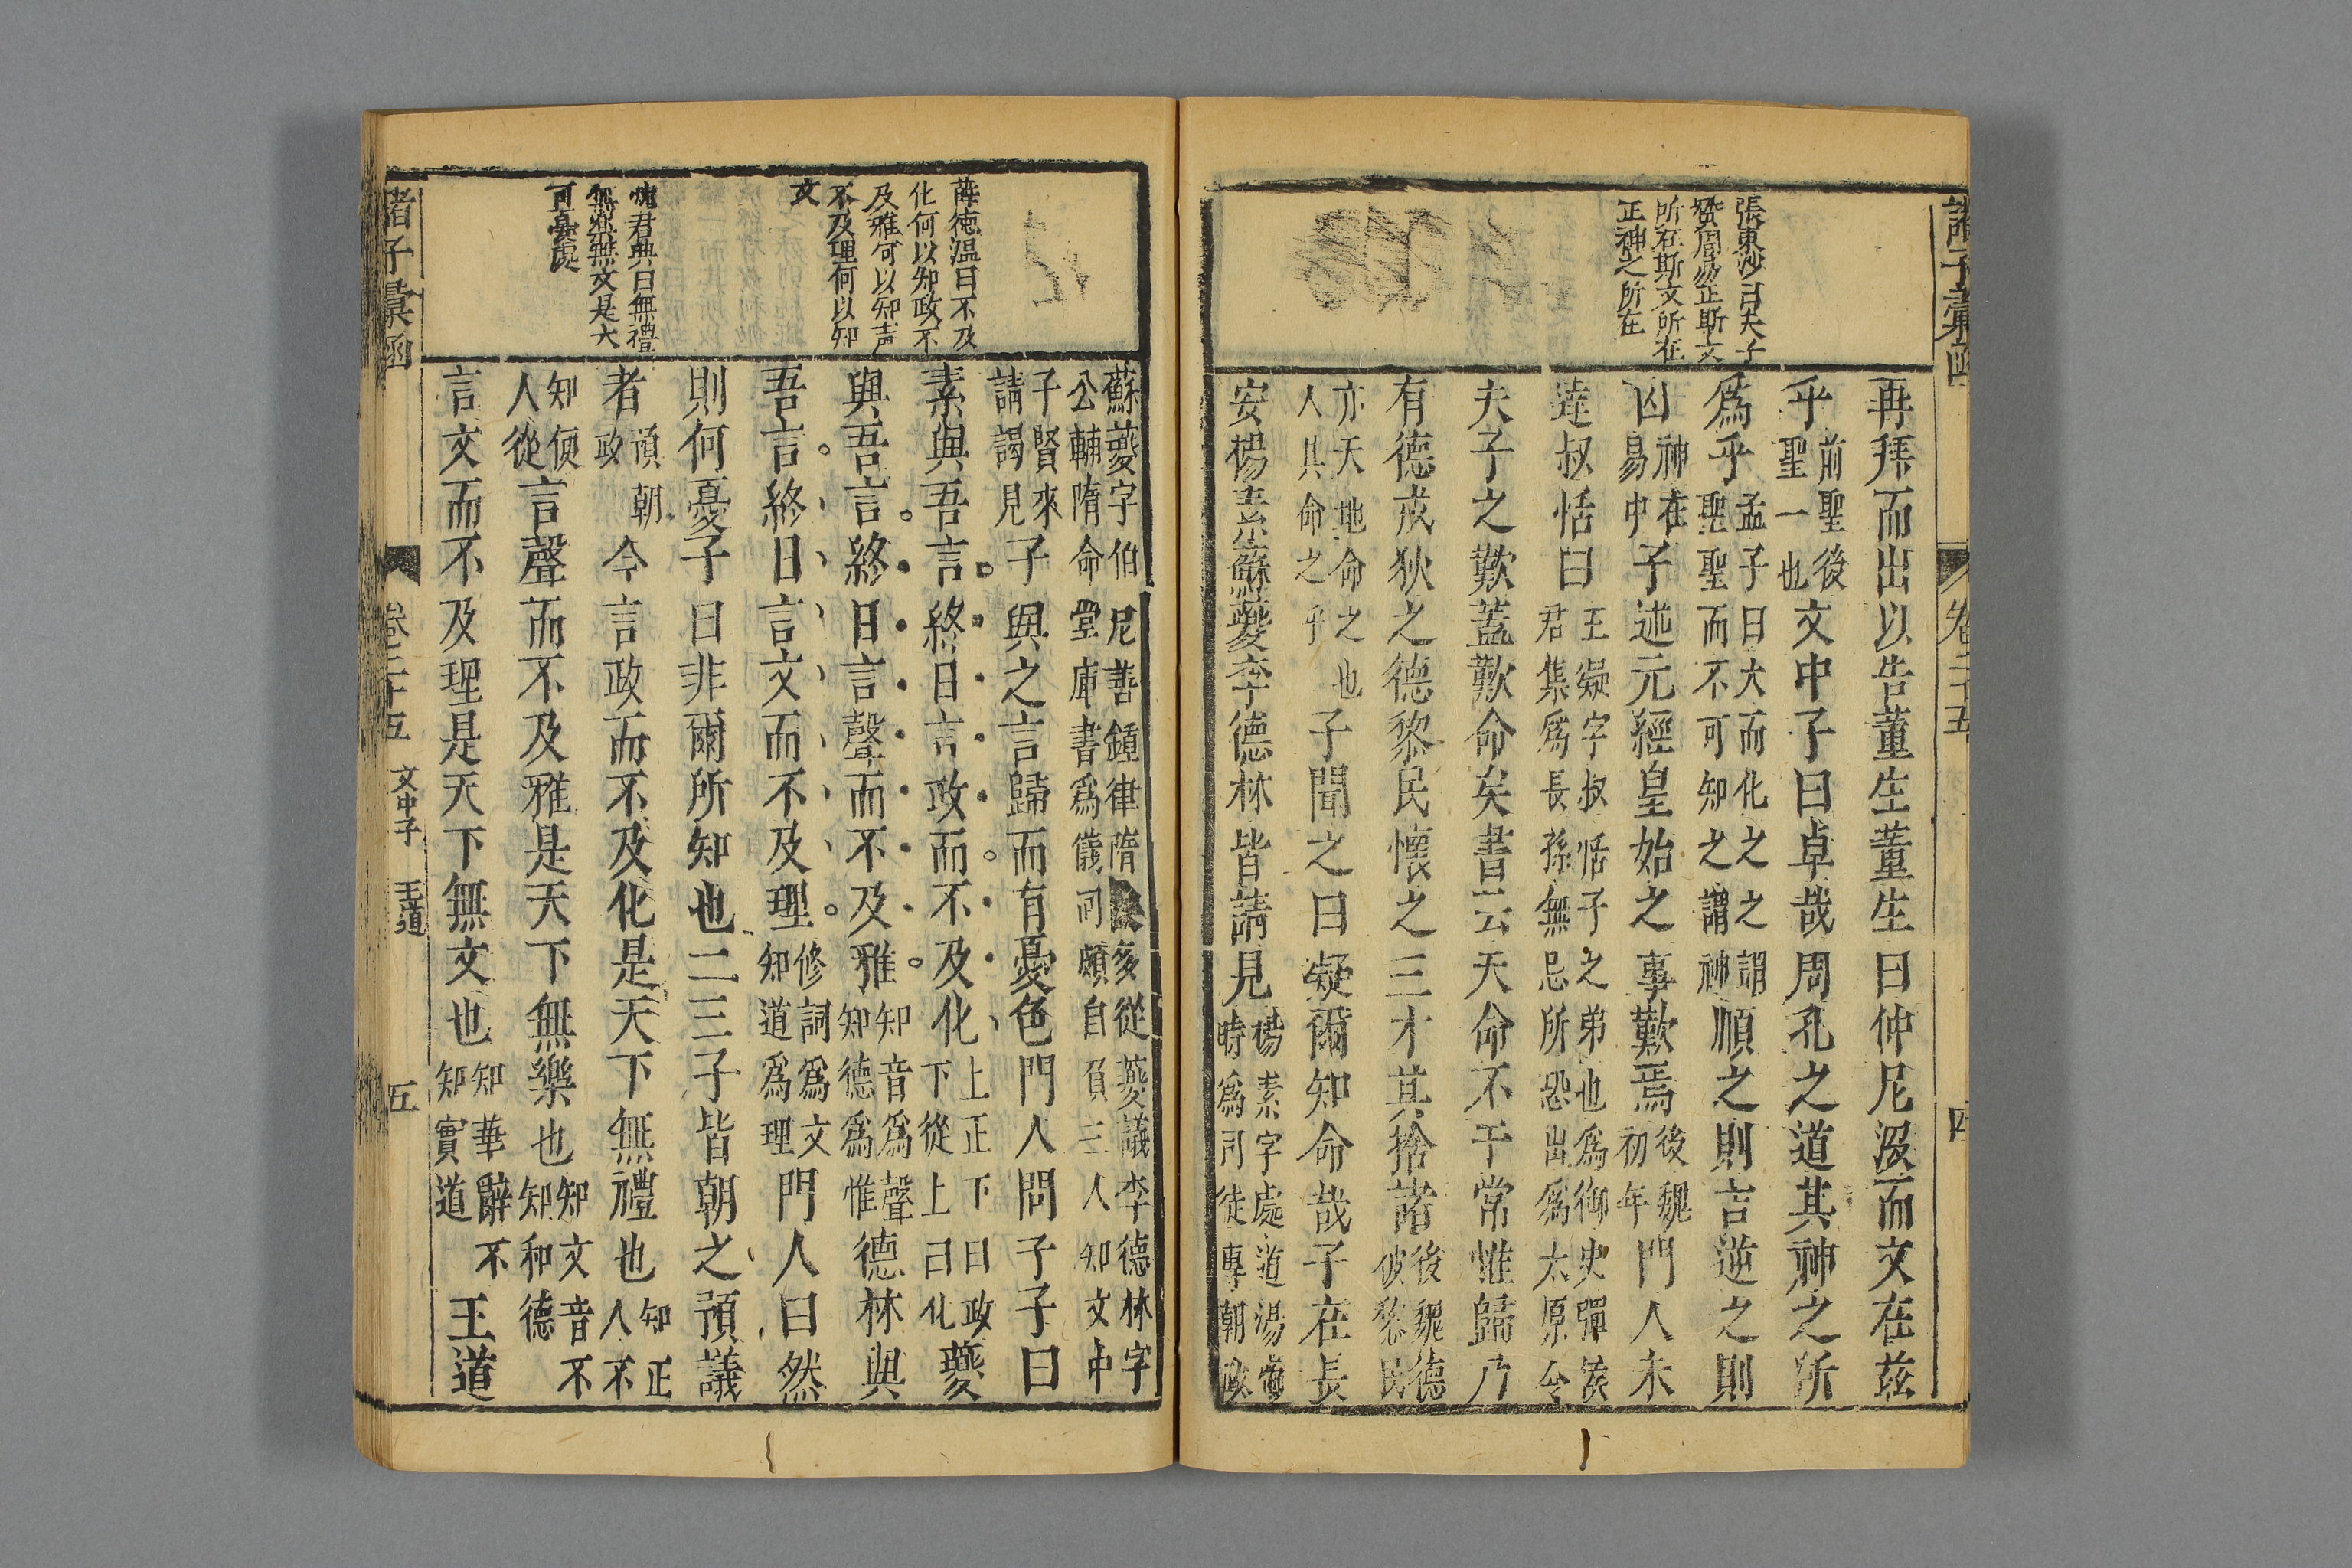 諸子彙函
卷二十五
四
張東沙曰夫子
贊周易正斯文
所在斯文所在
正神之所在
再拜而出以告董生董生曰仲尼沒而文在茲
乎前聖後聖一也文中子曰卓哉周孔之道其神之所
爲乎孟子曰大而化之之謂聖聖而不可知之之謂神順之則吉逆之則
凶神在易中子述元經皇始之事歎焉後魏初年門人未
達叔恬曰王凝字叔恬子之弟也爲御史彈侯君集爲長孫無忌所恐出爲太原令
夫子之歎蓋歎命矣書云天命不于常惟歸乃
有德戎狄之德黎民懷之三才其捨諸後魏德彼黎民
亦天地命之也人其命之乎子聞之曰凝爾知命哉子在長
安楊素蘇夔李德林皆請見楊素字處道湯帝時爲司徒專朝政
薛德温曰不及
化何以知政不
及雅何以知声
不及理何以知
文
君典曰無禮
無樂無文是大
可憂處
蘇夔字伯尼善鍾律隋多從夔議李德林字
公輔隋命堂庫書爲儀同頗自負三人知文中
子賢來請謁見子與之言歸而有憂色門人問子子曰
素與吾言終日言政而不及化上正下曰政下從上曰化夔
與吾言終日言聲而不及雅知音爲聲知德爲惟德林與
吾言終日言文而不及理修詞爲文知道爲理門人曰然
則何憂子曰非爾所知也二三子皆朝之預議
者預朝政今言政而不及化是天下無禮也知正人不
知便人從言聲而不及雅是天下無樂也知文音不知和德
言文而不及理是天下無文也知華辭不知實道王道
諸子彙函
卷二十五
文中子
王道
五